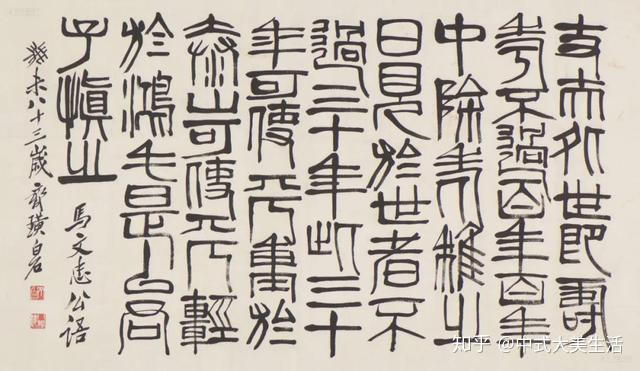 丈夫処世即壽
考不過百年百年
中除老稚之
日見於世者不
過三十年此三十
年可使其重於
泰山可使其輕
於鴻毛是以君
子慎之
馬文忠公語
癸未八十三歲齊璜白石
知乎 @中式大美生活